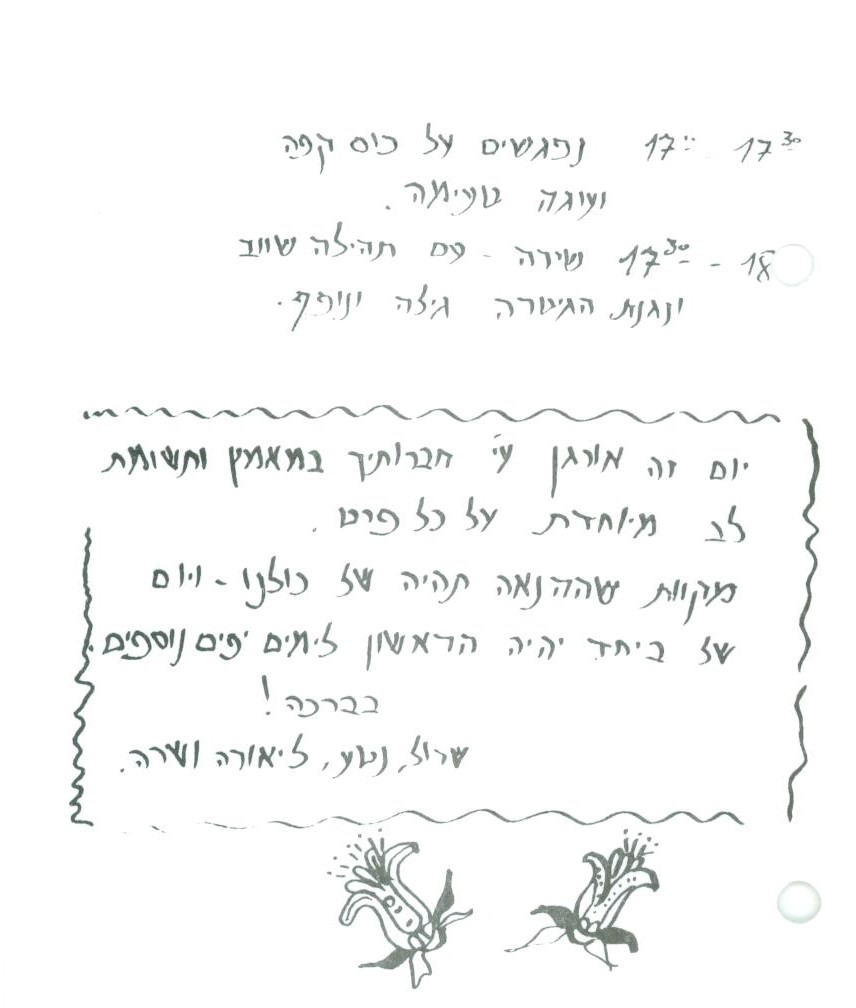 17³⁰ - 17⁰⁰ נפגשים על כוס קפה
ועוגה טעימה.
18 - 17³⁰ שירה - עם תהילה שווב
ונגנת הגיטרה גילה ינופף.
יום זה אורגן ע"י חברותיך במאמץ ותשומת
לב מיוחדת על כל פרט.
מקוות שההנאה תהיה של כולנו - ויום
של ביחד יהיה הראשון לימים יפים נוספים.
בברכה!
שרול, נטע, ליאורה ושרה.